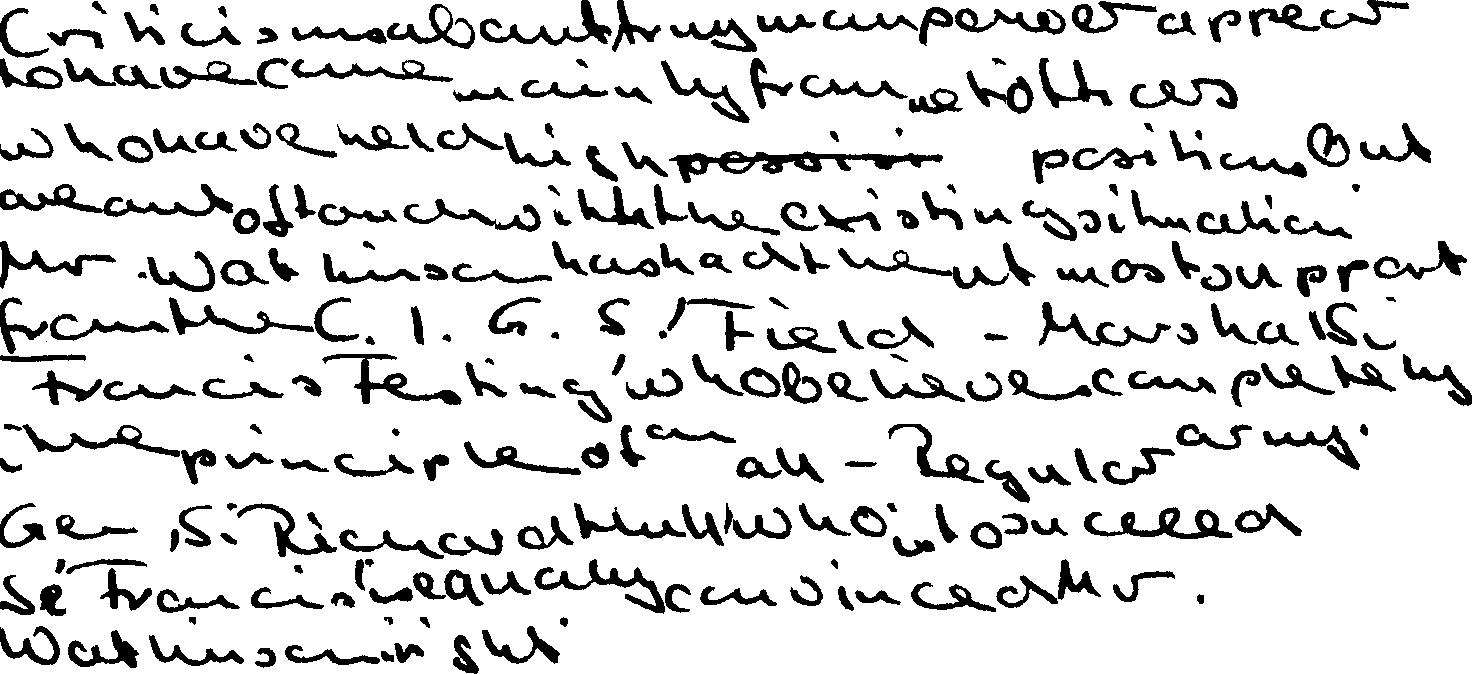 Criticisms about Army manpower appear
to have come mainly from ret officers
who have held high positions But
are out of touch with the existing situation
Mr. Watkinson has had the utmost support
from the C. I. G. S., Field - Marshal Sir
Francis Festing, who believes completely
in the principle of an all - Regular army.
Gen, Sir Richard Hull, who is to succeed
Sir Francis, is equally convinced Mr.
Watkinson is right.